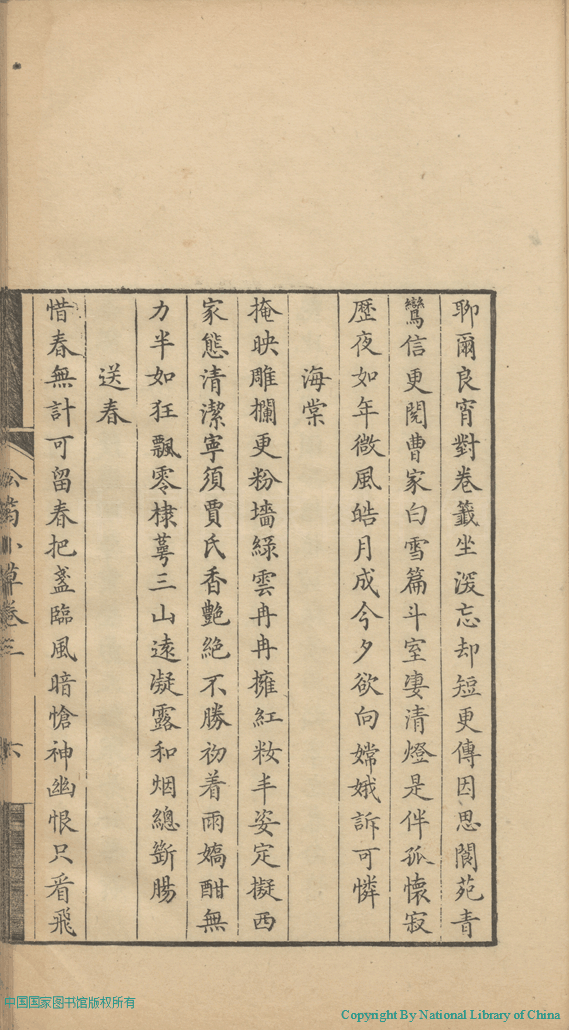 聊爾良宵對卷籤坐深忘却短更傳因思閬苑青
鸞信更閱曹家白雪篇斗室凄清燈是伴孤懷寂
歷夜如年微風皓月成今夕欲向嫦娥訴可憐
海棠
掩映雕攔更粉墻綠雲冉冉擁紅粧丰姿定擬西
家態清潔寧須賈氏香艷絕不勝初着雨嬌酣無
力半如狂飄零棣萼三山遠凝露和烟總斷腸
送春
惜春無計可留春把盞臨風暗愴神幽恨只看飛
小草卷三
六
中国国家图书馆版权所有
Copyright By National Library of China